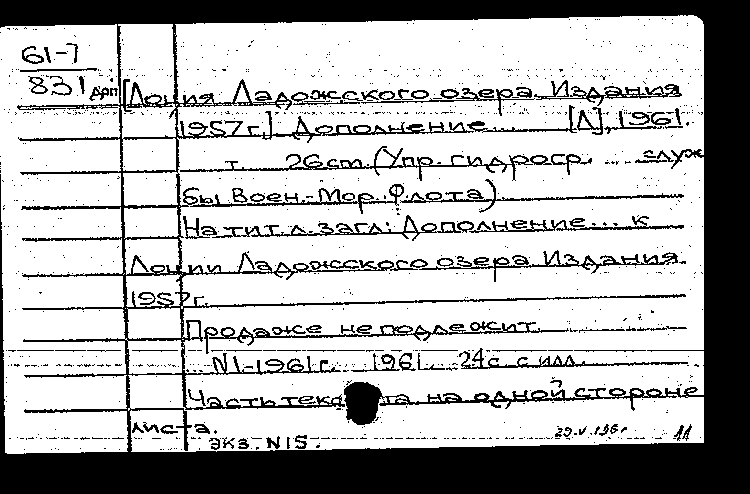 61-7
831 дрп [Лоция Ладожского озера. Издания
1957г.] Дополнение... [Л], 1961.
т. 26cm. (Упр. гидрогр. ... служ
бы Воен.-Мор. Флота)
На тит. л. загл: Дополнение... к
Лоции Ладожского озера Издания
1957г.
Продаже не подлежит.
N1-1961г. 1961. 24с. с илл.
Часть текста на одной стороне
листа.
экз. N15. 29.V.196 11